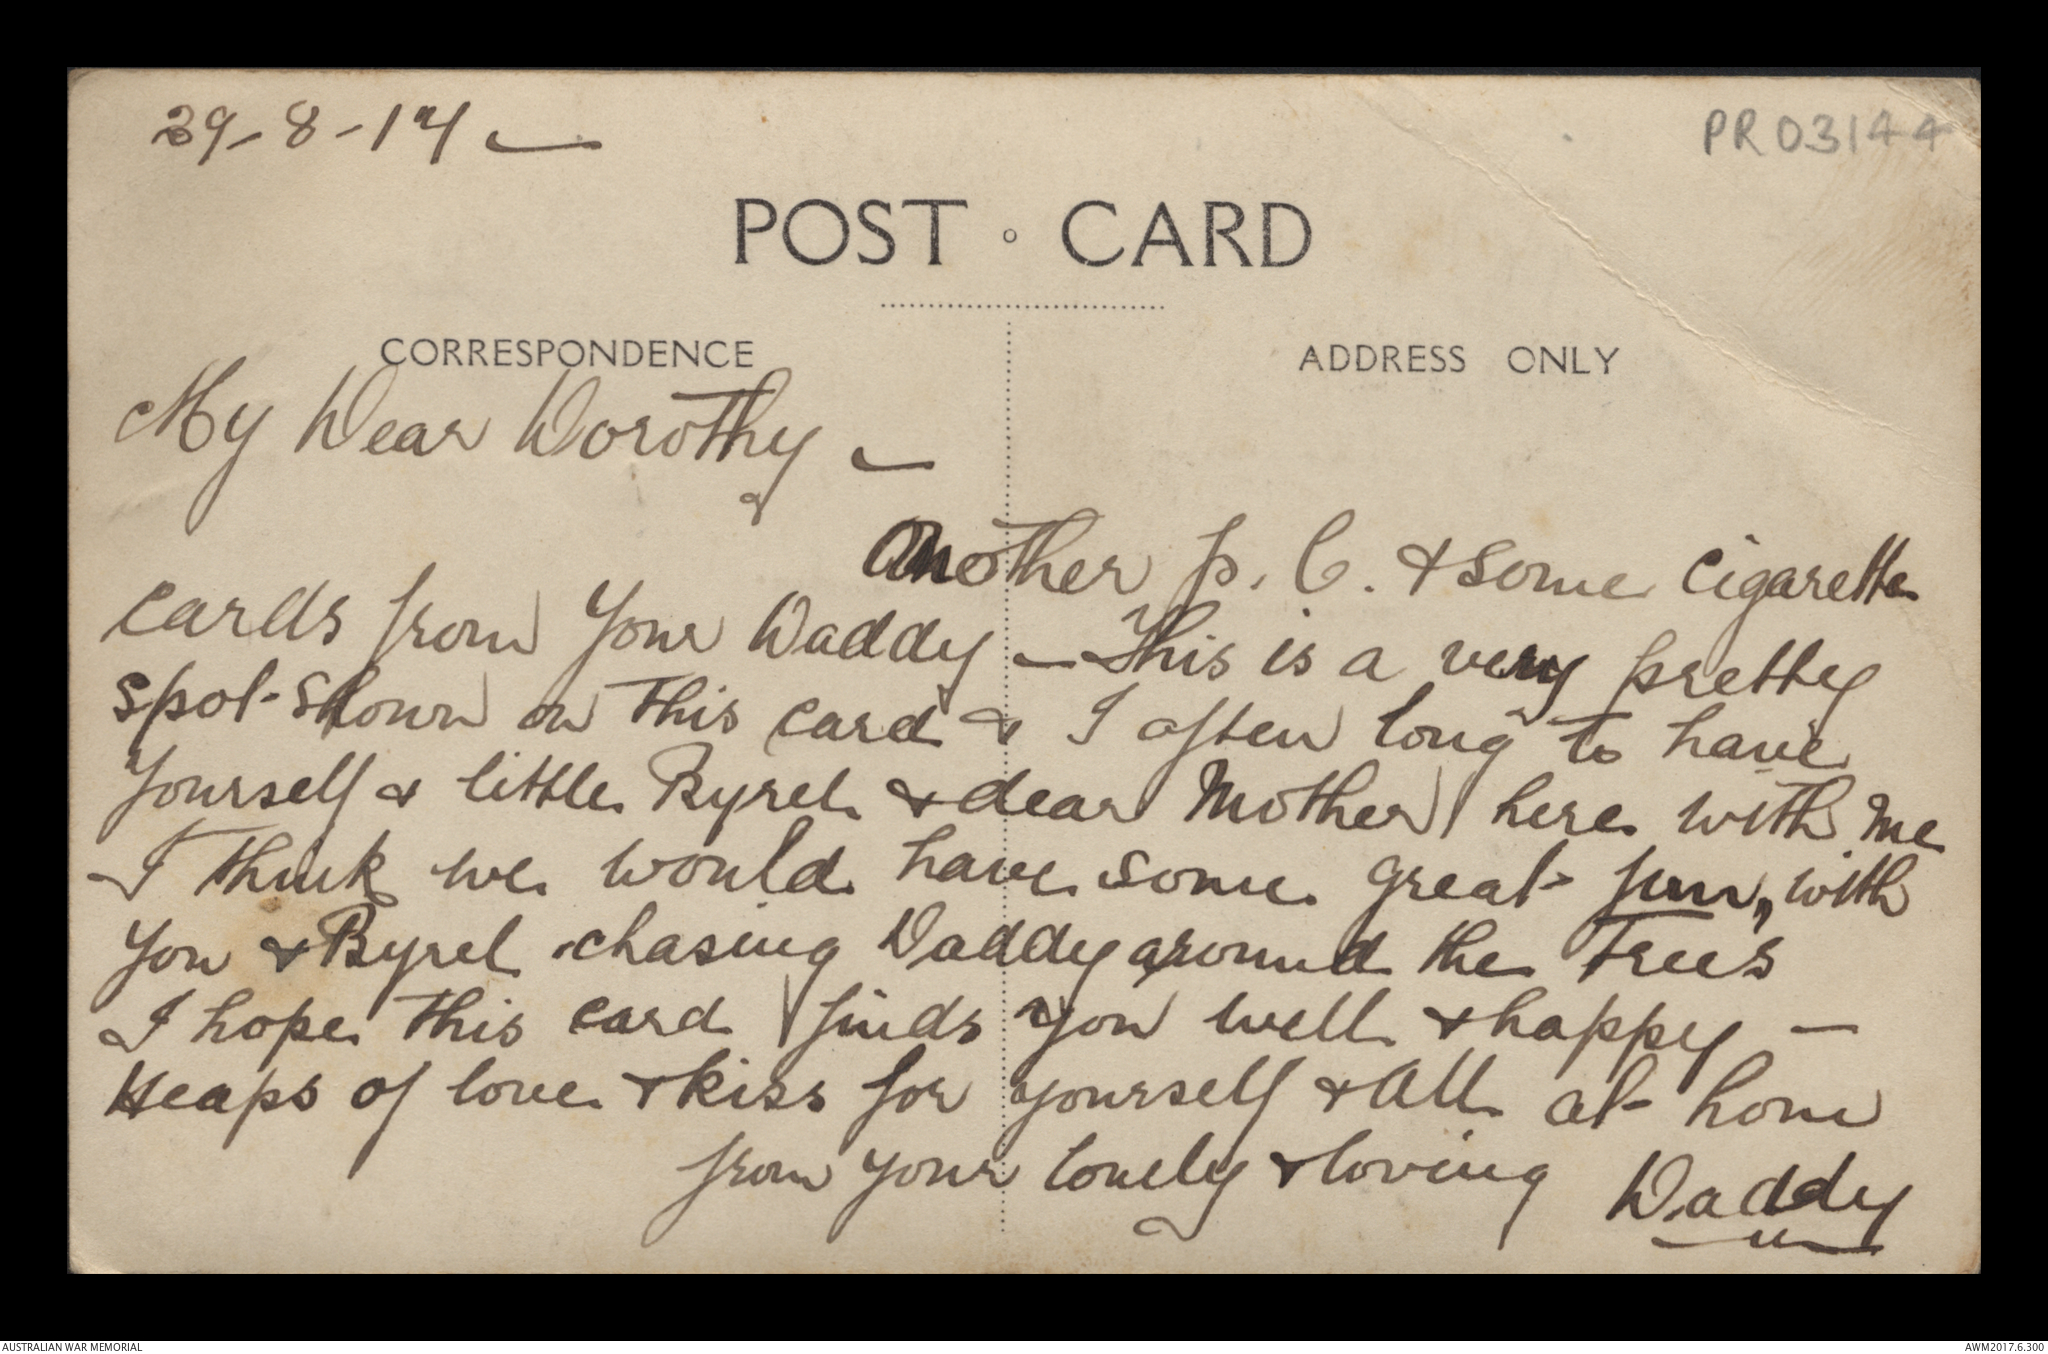 29-8-17
PR03144
POST CARD
CORRESPONDENCE
ADDRESS ONLY
My Dear Dorothy -
Another p. C. & some cigarette
cards from Your Daddy - This is a very pretty
spot shown on this card & I often long to have
Yourself & little Byrel & dear Mother here with me
I think we would have some great fun, with
You & Byrel chasing Daddy around the Trees
I hope this card finds you well & happy -
Heaps of love & kiss for yourself & All at home
from your lonely & loving Daddy
AUSTRALIAN WAR MEMORIAL
AWM2017.6.300